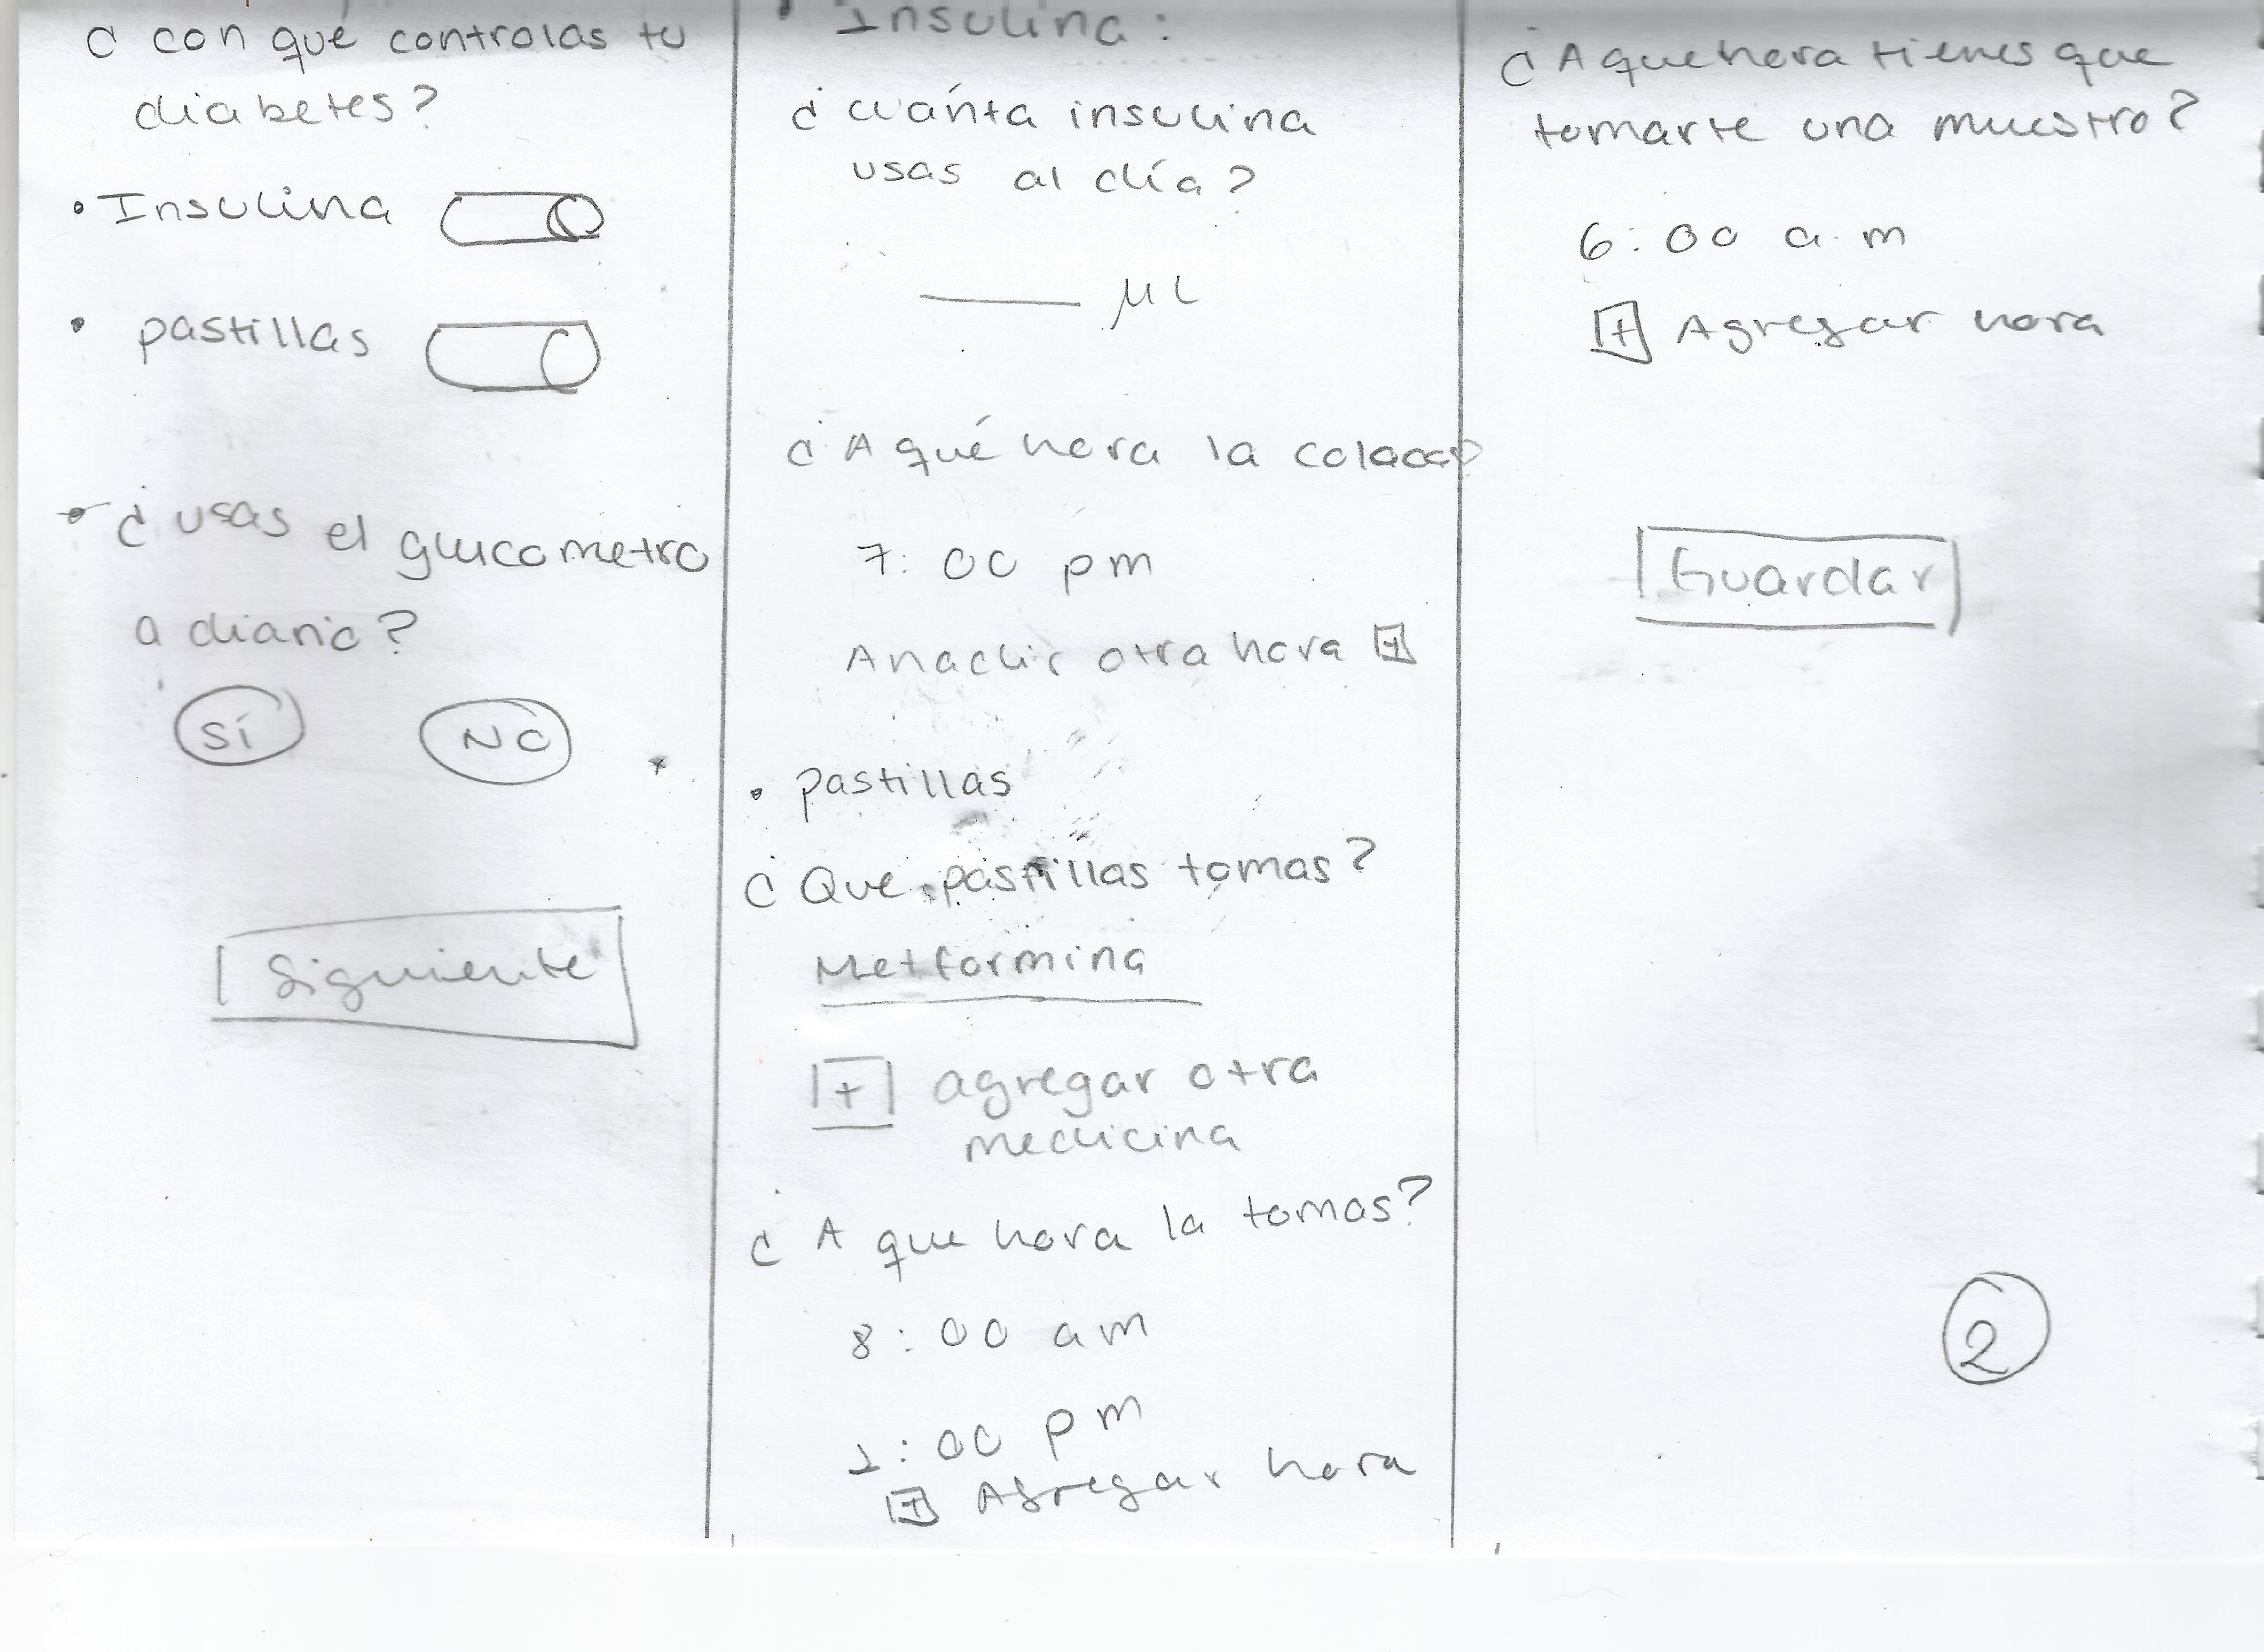 ¿ con qué controlas tu
diabetes?
• Insulina
• pastillas
¿ usas el glucometro
a diario?
sí
No
Siguiente
• Insulina:
¿ cuánta insulina
usas al día?
____ µL
¿ A qué hora la colocas?
7:00 pm
Anadir otra hora +
• pastillas
¿ Que pastillas tomas?
Metformina
+ agregar otra
medicina
¿ A que hora la tomas?
8:00 am
1:00 pm
+ Agregar hora
¿ A que hora tienes que
tomarte una muestro?
6:00 a.m
+ Agregar hora
Guardar
2